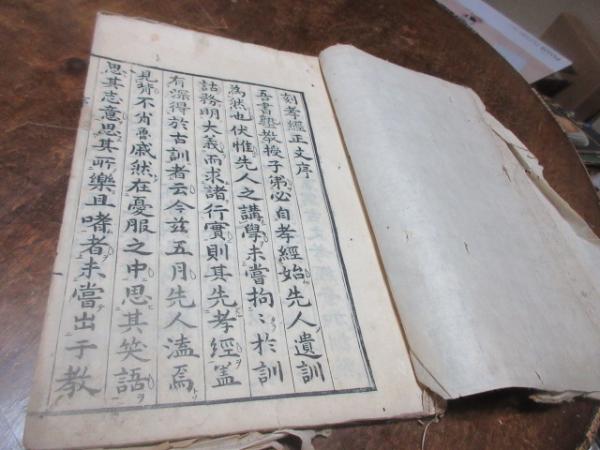 刻孝經正文序
吾書塾教授子弟必自孝經始先人遺訓
為然也伏惟先人之講學未嘗拘〻於訓
詁務明大義而求諸行實則其先孝經蓋
有深得於古訓者云今茲五月先人溘焉
見背不肖魯戚然在憂服之中思其笑語
思其志意思其所樂且嗜者未嘗出于教